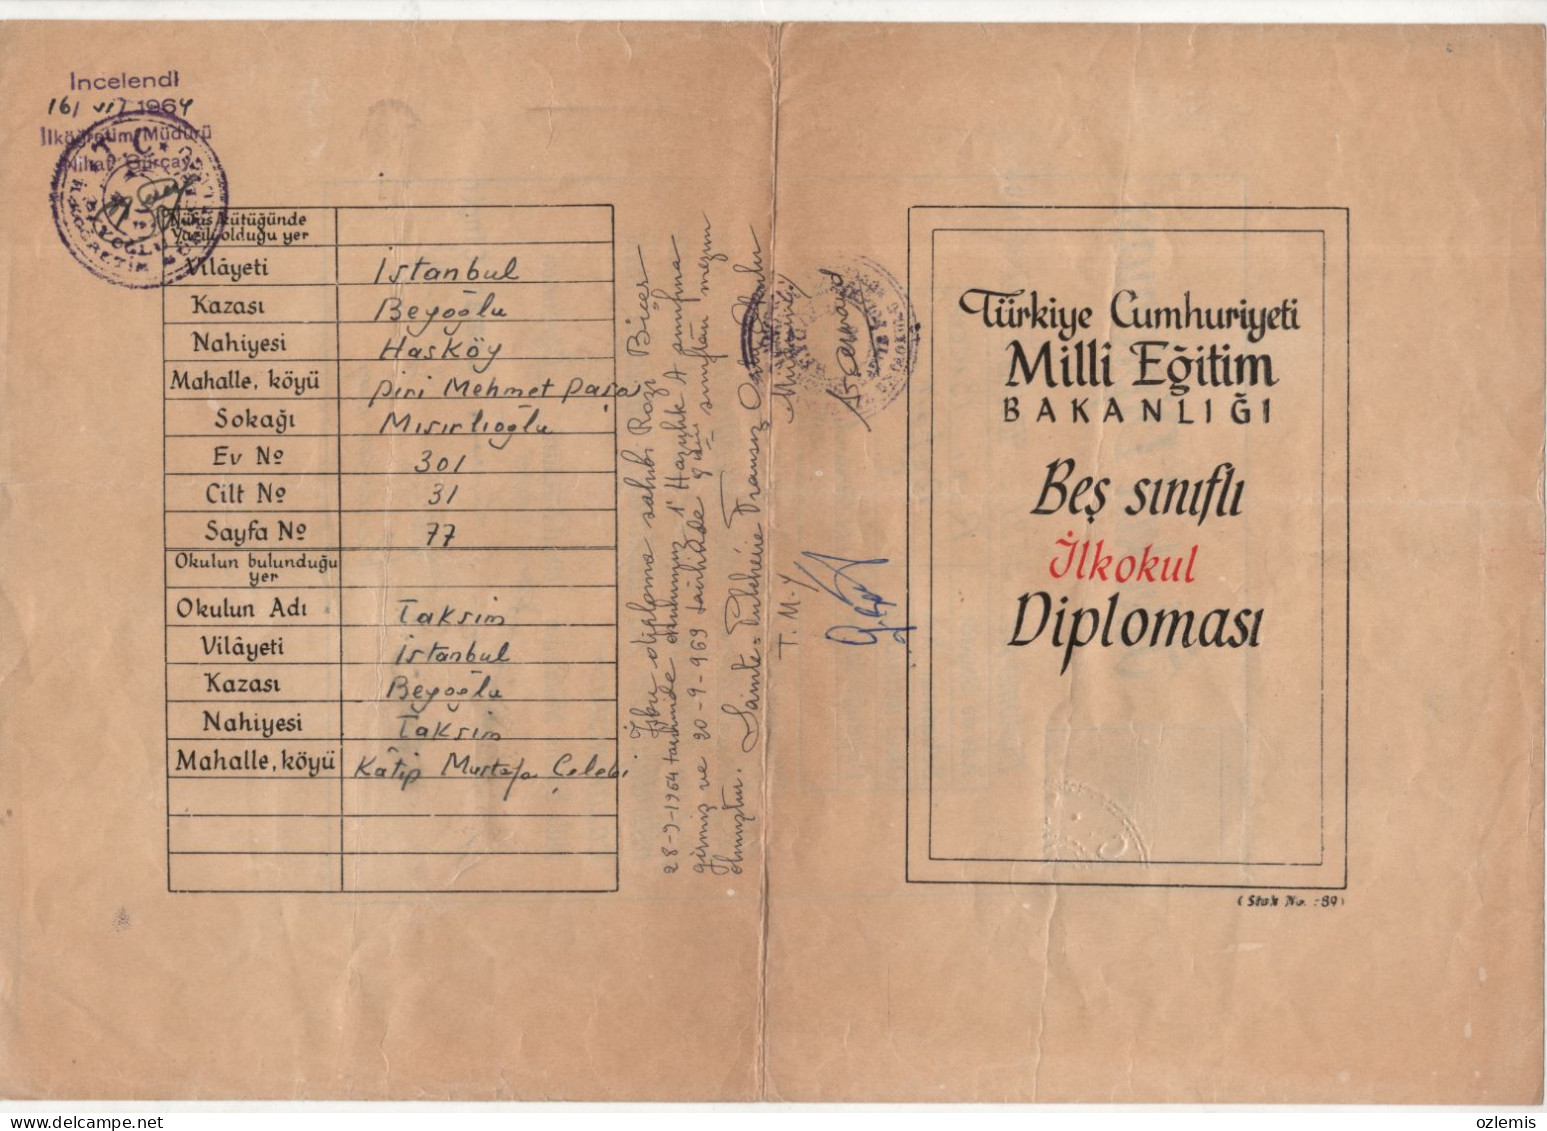 Incelendi
16/ VII 1964
İlköğretim Müdürü
Nihat Gürçay
T.C.
Nüfus kütüğünde
yazılı olduğu yer
Vilâyeti İstanbul
Kazası Beyoğlu
Nahiyesi Hasköy
Mahalle, köyü Piri Mehmet Paşa
Sokağı Mısırlıoğlu
Ev No 301
Cilt No 31
Sayfa No 77
Okulun bulunduğu
yer
Okulun Adı Taksim
Vilâyeti İstanbul
Kazası Beyoğlu
Nahiyesi Taksim
Mahalle, köyü Kâtip Mustafa Çelebi
İşbu diploma sahibi Razi Biçer
28-9-1964 tarihinde okulumuz 1' Hazırlık A sınıfına
girmiş ve 20-9-969 tarihinde sınıftan mezun
olmuştur. Sainte-Pulchérie Fransız Orta Okulu
Müdürlüğü
T. M-Y
Türkiye Cumhuriyeti
Millî Eğitim
BAKANLIĞI
Beş sınıflı
İlkokul
Diploması
(Stok No. :89)
ozlemis